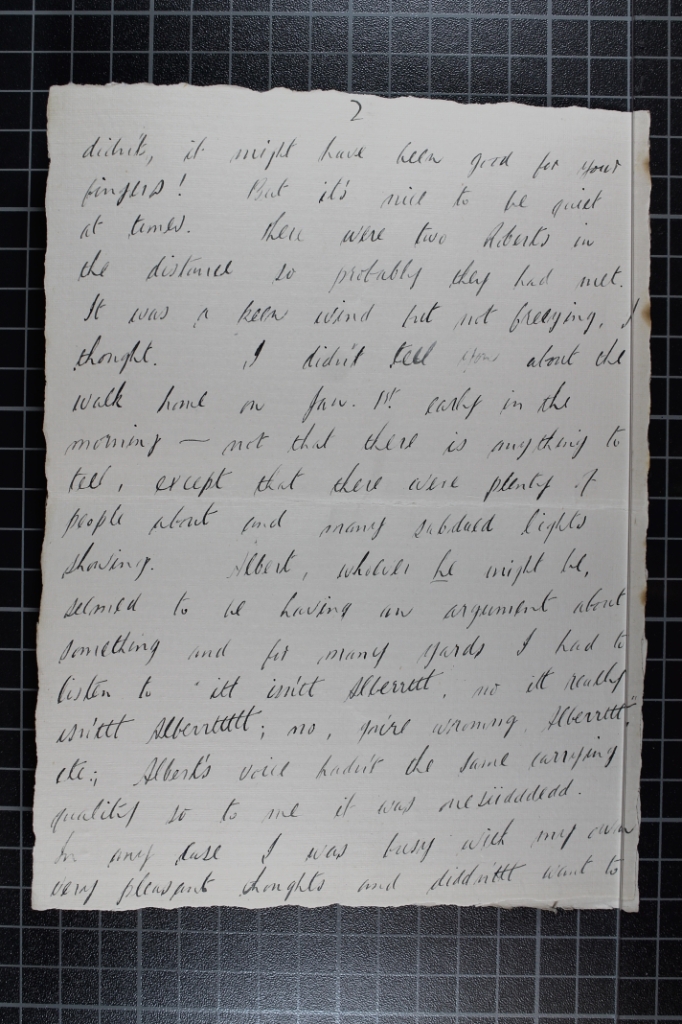 2
didn't, it might have been good for your
fingers! But it's nice to be quiet
at times. There were two Alberts in
the distance so probably they had met.
It was a keen wind but not freezing, I
thought. I didn't tell you about the
walk home on Jan. 1st. early in the
morning — not that there is anything to
tell, except that there were plenty of
people about and many subdued lights
showing. Albert, whoever he might be,
seemed to be having an argument about
something and for many yards I had to
listen to "itt isn'tt Alberrttt, no itt really
isn'ttt Alberrttttt; no, you're wromng, Alberrttt."
etc.; Albert's voice hadn't the same carrying
quality so to me it was onesiidddedd.
In any case I was busy with my own
very pleasant thoughts and diddn'ttt want to